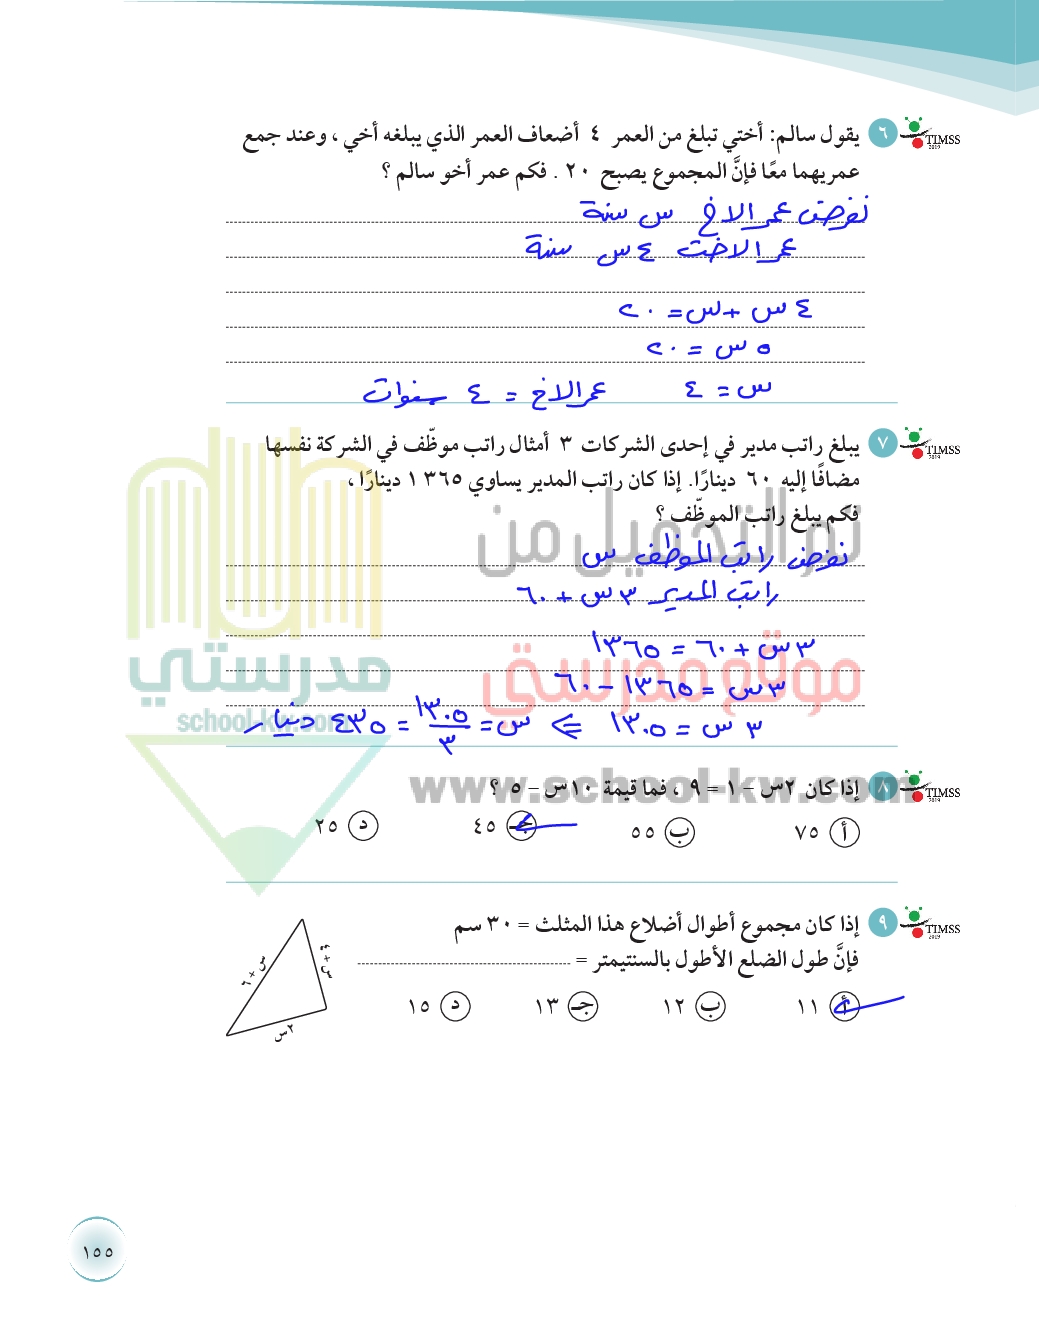 ٦ يقول سالم: أختي تبلغ من العمر ٤ أضعاف العمر الذي يبلغه أخي ، وعند جمع
TIMSS 2019
عمريهما معًا فإنَّ المجموع يصبح ٢٠ . فكم عمر أخو سالم ؟
نفرض عمر الاخ س سنة
عمر الاخت ٤ س سنة
٤ س + س = ٢٠
٥ س = ٢٠
س = ٤ عمر الاخ = ٤ سنوات
٧ يبلغ راتب مدير في إحدى الشركات ٣ أمثال راتب موظّف في الشركة نفسها
TIMSS 2019
مضافًا إليه ٦٠ دينارًا. إذا كان راتب المدير يساوي ٣٦٥ ١ دينارًا ،
فكم يبلغ راتب الموظّف ؟
تم التحميل من
نفرض راتب الموظف س
راتب المدير ٣ س + ٦٠
٣ س + ٦٠ = ١٣٦٥
موقع مدرستي
مدرستي
school-kw.com
٣ س = ١٣٦٥ – ٦٠
٣ س = ١٣٠٥ ⇐ س = ١٣٠٥/٣ = ٤٣٥ دينار
www.school-kw.com
٨ إذا كان ٢س – ١ = ٩ ، فما قيمة ١٠س – ٥ ؟
TIMSS 2019
أ ٧٥ ب ٥٥ جـ ٤٥ د ٢٥
٩ إذا كان مجموع أطوال أضلاع هذا المثلث = ٣٠ سم
TIMSS 2019
فإنَّ طول الضلع الأطول بالسنتيمتر =
س + ٦
س + ٤
٢س
أ ١١ ب ١٢ جـ ١٣ د ١٥
١٥٥